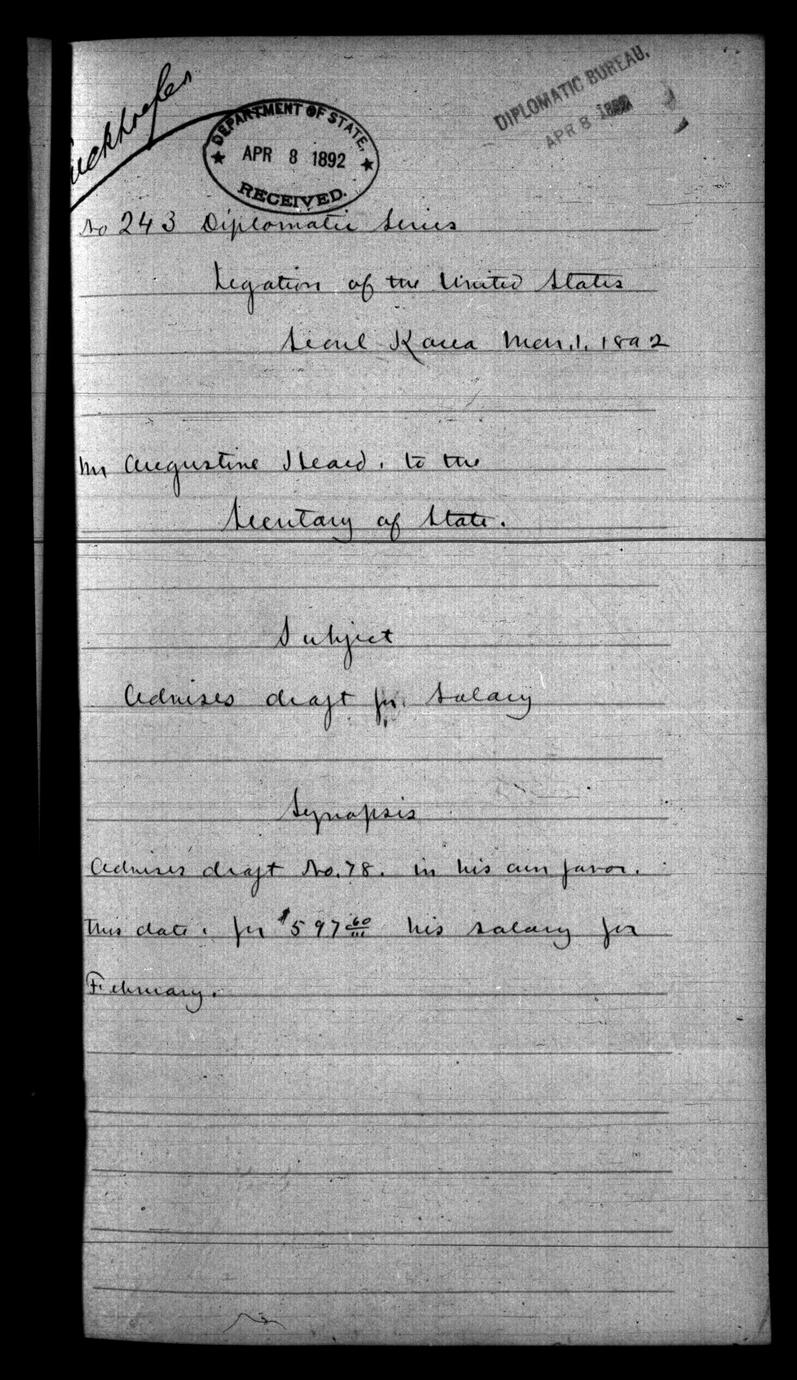 DEPARTMENT OF STATE,
APR 8 1892
RECEIVED.
DIPLOMATIC BUREAU.
APR 8 1892
No 243 Diplomatic Series
Legation of the United States
Seoul Korea Mch. 1. 1892
Mr Augustine Heard, to the
Secretary of State.
Subject
Advises draft for salary
Synopsis
Advises draft No. 78. in his own favor.
this date, for $597 60/100 his salary for
February.